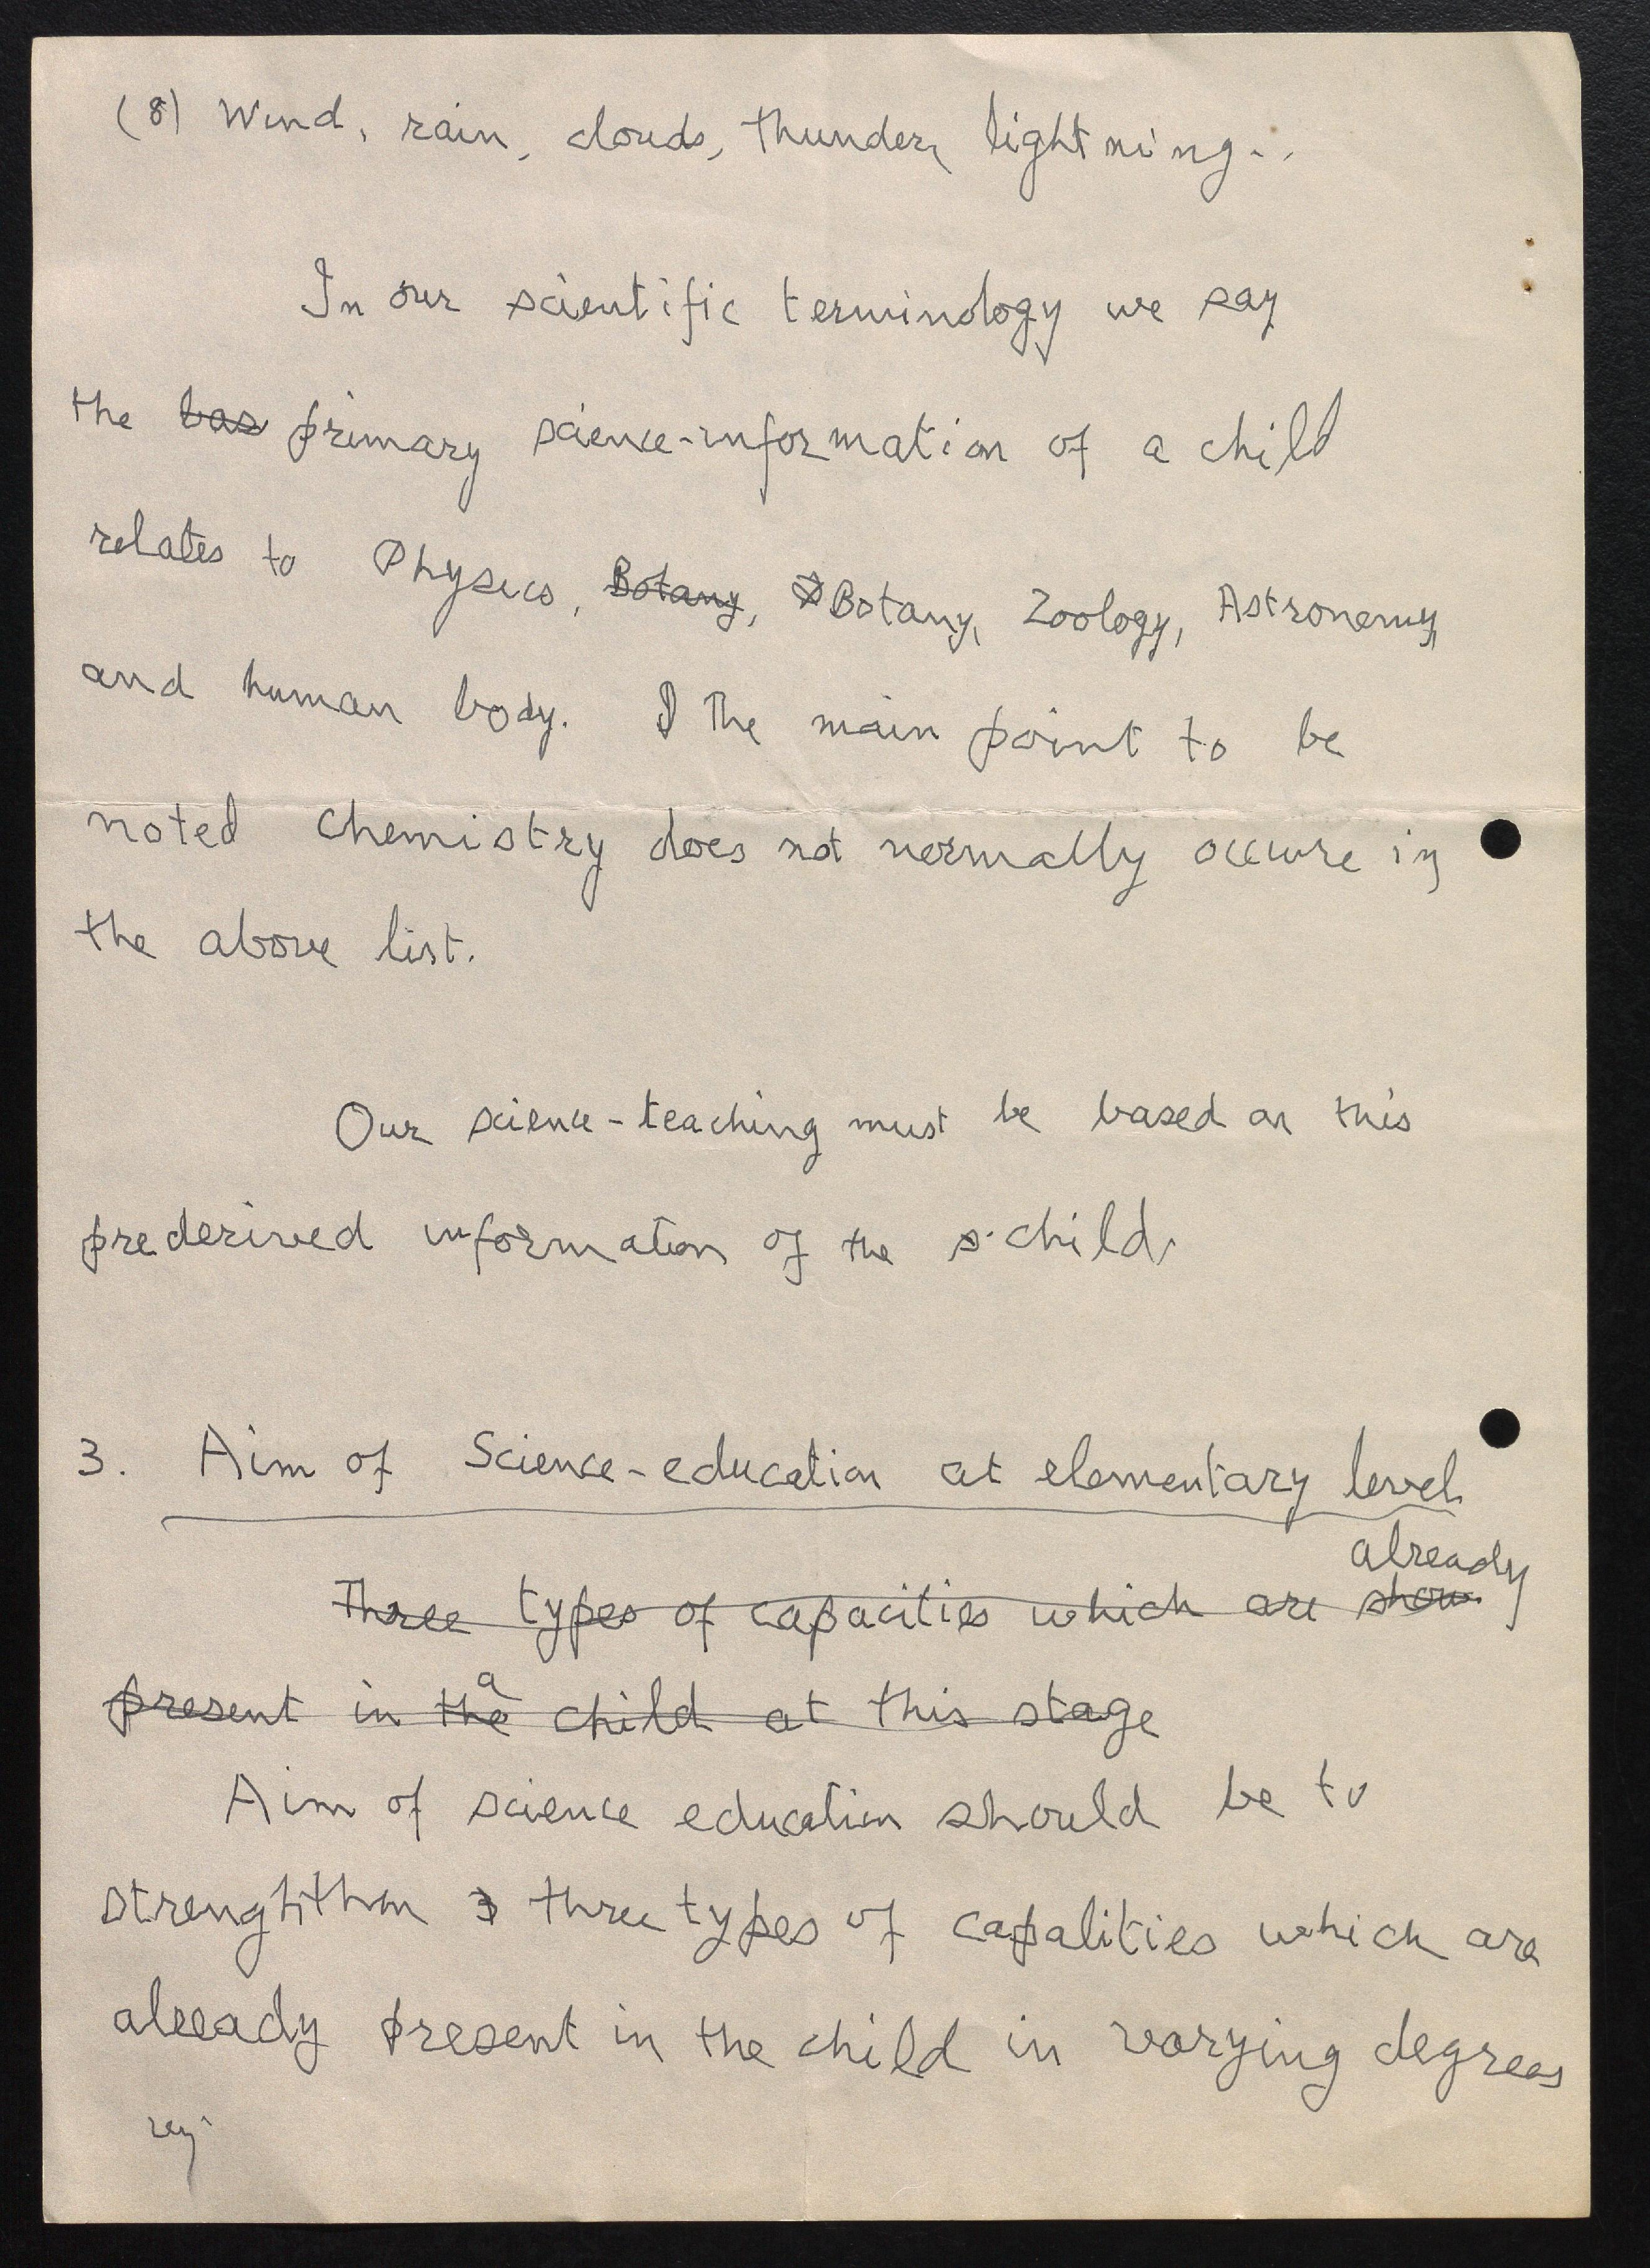 (8) Wind, rain, clouds, thunder, lightning..
In our scientific terminology we say
the bas primary science-information of a child
relates to Physics, Botany, Botany, Zoology, Astronomy,
and human body. The main point to be
noted chemistry does not normally occure in
the above list.
Our science-teaching must be based on this
prederived information of the s child.
3. Aim of Science-education at elementary level
already
Three types of capacities which are show
a
present in the child at this stage
Aim of science education should be to
strenghthen 3 three types of capalities which are
already present in the child in varying degrees